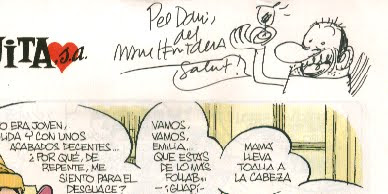 UITA s.a.
Pee Dani,
del
Salut!
O ERA JOVEN,
LIDA Y CON UNOS
ACABADOS DECENTES...
¿POR QUÉ, DE
REPENTE, ME
SIENTO PARA EL
DESGUACE?
VAMOS,
VAMOS,
EMILIA...
QUE ESTÁS
DE LO MÁS
FOLLAB...
¡GUAPÍ-
MAMÁ
LLEVA
TOALLA A
LA CABEZA